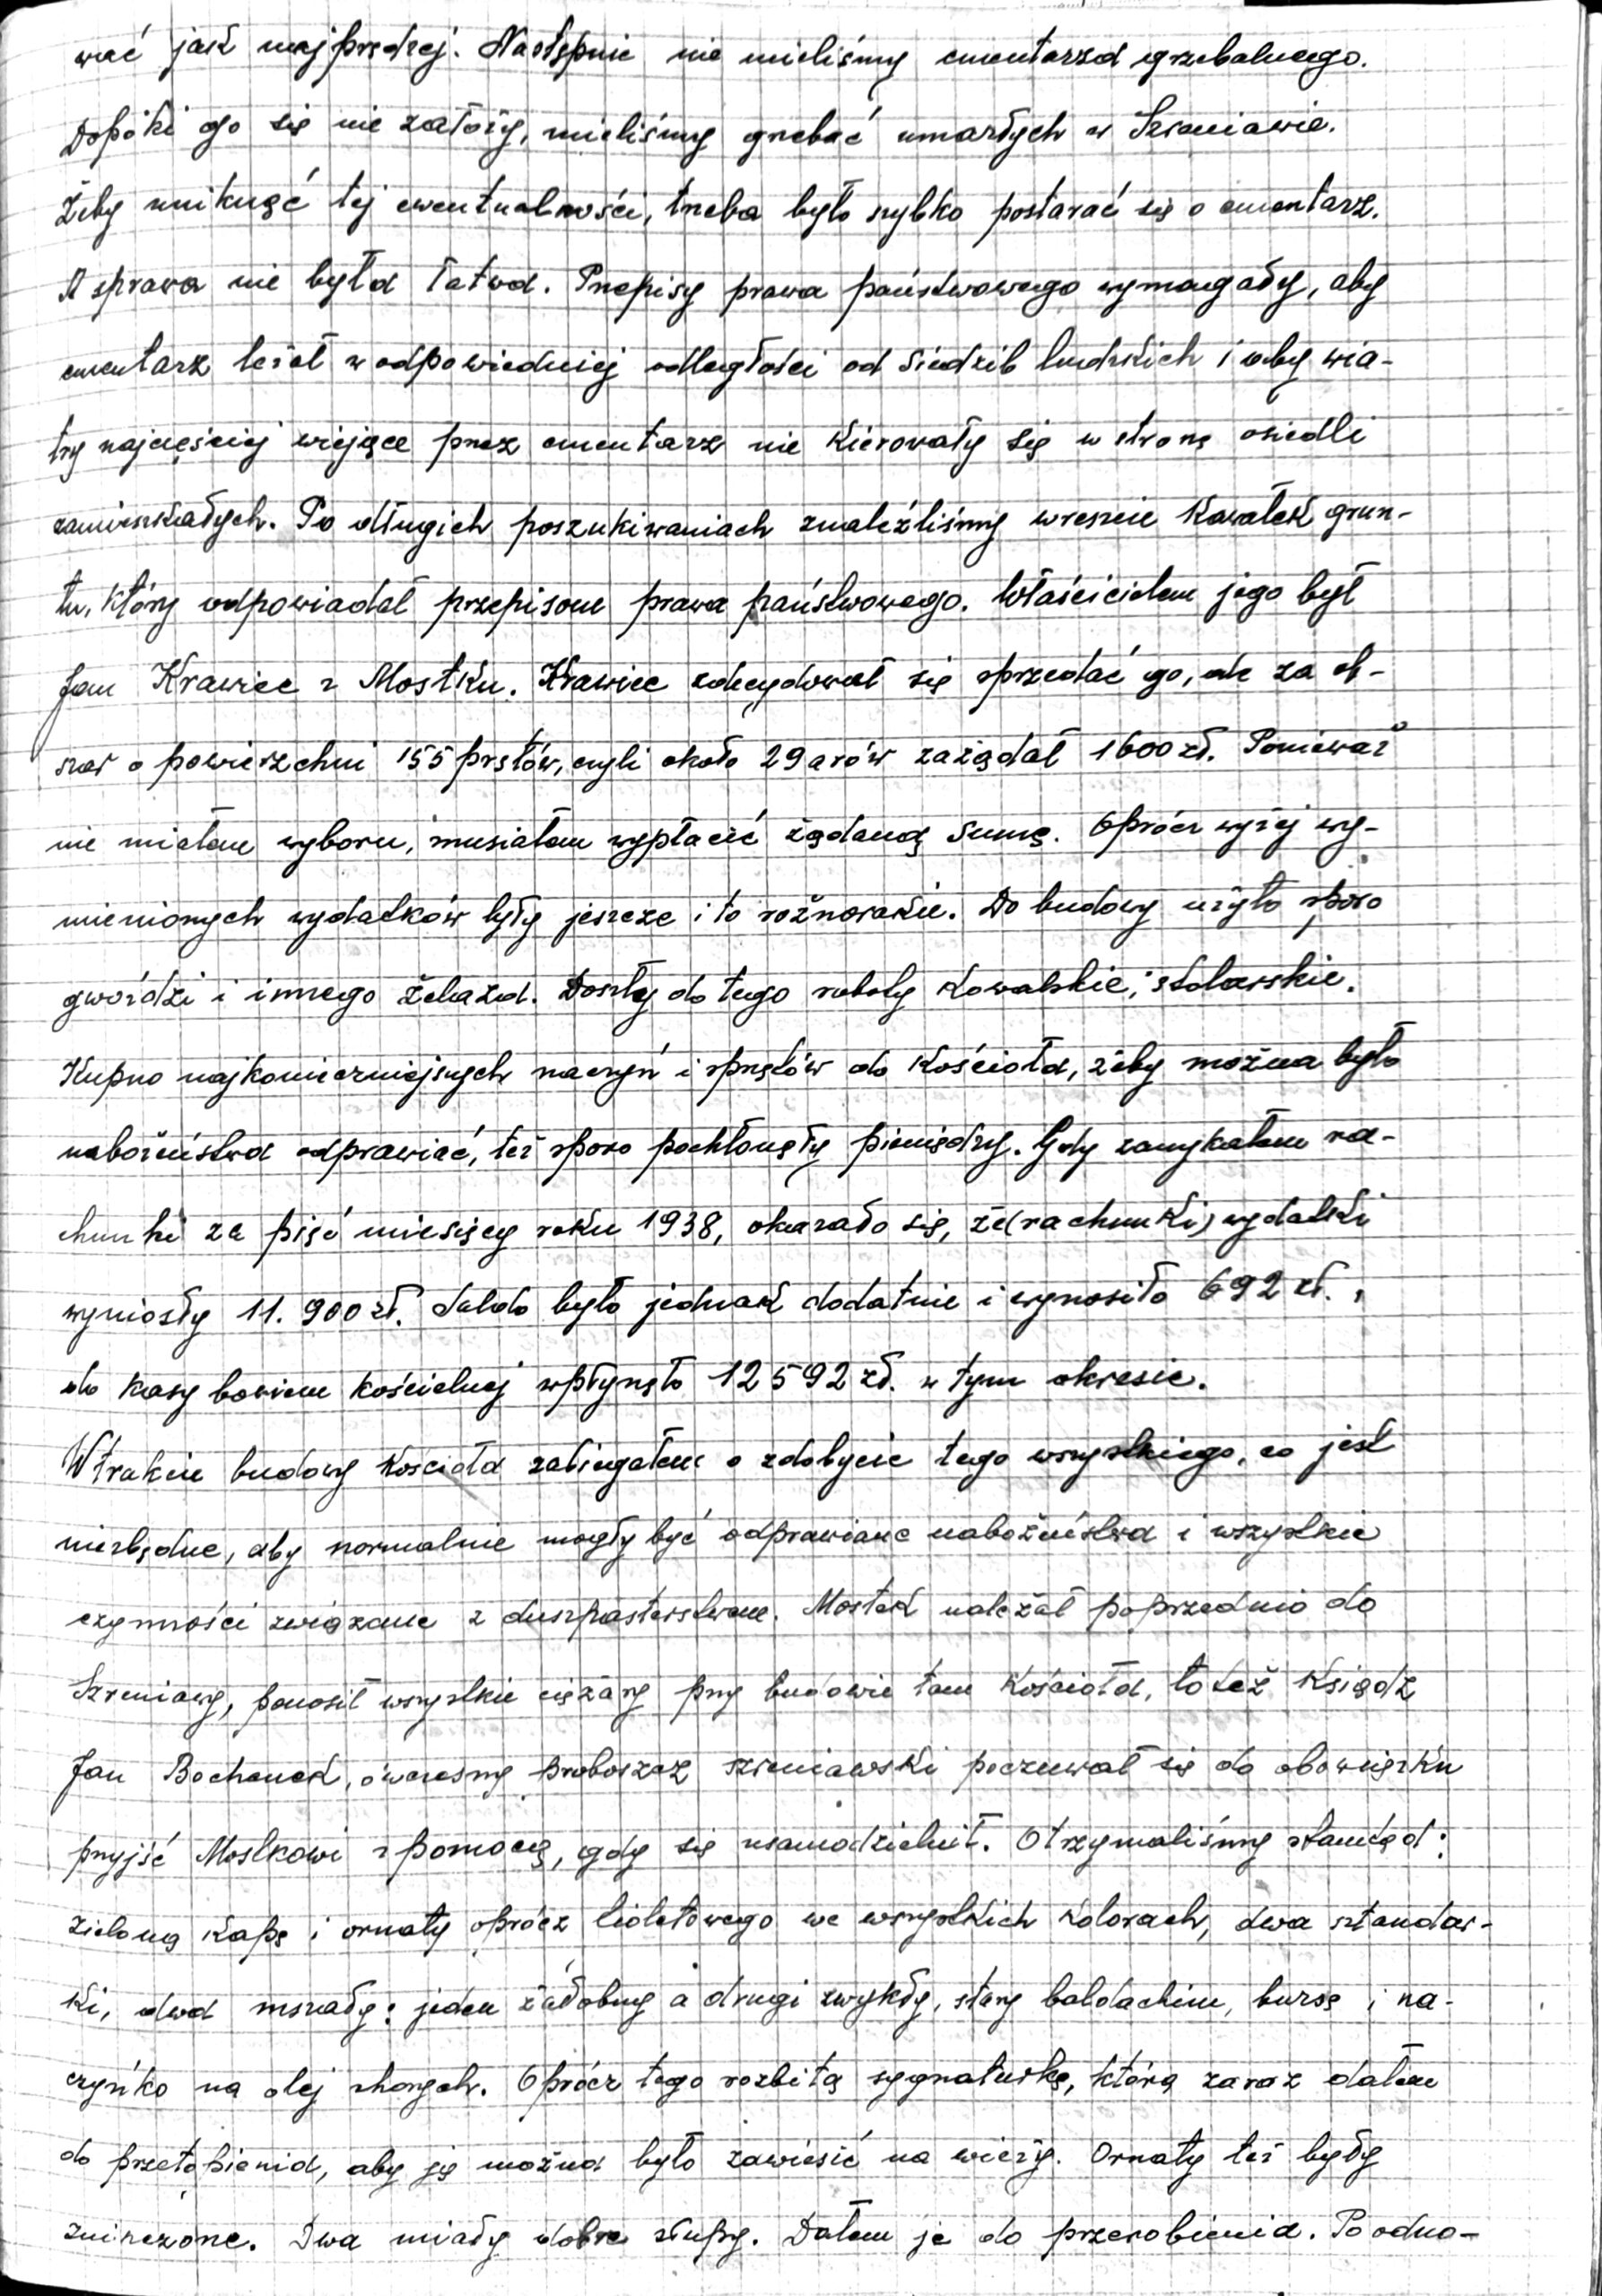 wać jak najprędzej. Następnie nie mieliśmy cmentarza grzebalnego.
Dopóki go się nie założy, mieliśmy grzebać umarłych w Szreniawie.
Żeby uniknąć tej ewentualności, trzeba było szybko postarać się o cmentarz.
A sprawa nie była łatwa. Przepisy prawa państwowego wymagały, aby
cmentarz leżał w odpowiedniej odległości od siedzib ludzkich i aby wia-
try najczęściej wiejące przez cmentarz nie kierowały się w stronę osiedli
zamieszkałych. Po długich poszukiwaniach znaleźliśmy wreszcie kawałek grun-
tu, który odpowiadał przepisom prawa państwowego. Właścicielem jego był
Jan Krawiec z Mostku. Krawiec zdecydował się sprzedać go, ale za ob-
szar o powierzchni 155 prętów, czyli około 29 arów zażądał 1600 zł. Ponieważ
nie miałem wyboru, musiałem wypłacić żądaną sumę. Oprócz wyżej wy-
mienionych wydatków były jeszcze i to rożnorakie. Do budowy użyto sporo
gwoździ i innego żelaza. Doszły do tego roboty kowalskie, stolarskie.
Kupno najkonieczniejszych naczyń i sprzętów do kościoła, żeby można było
nabożeństwa odprawiać, też sporo pochłonęły pieniędzy. Gdy zamykałem ra-
chunki za pięć miesięcy roku 1938, okazało się, że (rachunki) wydatki
wyniosły 11.900 zł. Saldo było jednak dodatnie i wynosiło 692 zł.,
do kasy bowiem kościelnej wpłynęło 12592 zł. w tym okresie.
W trakcie budowy kościoła zabiegałem o zdobycie tego wszystkiego, co jest
niezbędne, aby normalnie mogły być odprawiane nabożeństwa i wszystkie
czynności związane z duszpasterstwem. Mostek należał poprzednio do
Szreniawy, ponosił wszystkie ciężary przy budowie tam kościoła, toteż ksiądz
Jan Bochenek, ówczesny proboszcz szreniawski poczuwał się do obowiązku
przyjść Mostkowi z pomocą, gdy się usamodzielnił. Otrzymaliśmy stamtąd:
zieloną kapę i ornaty oprócz fioletowego we wszystkich kolorach, dwa sztandar-
ki, dwa mszały: jeden żałobny a drugi zwykły, stary baldachim, bursę i na-
czyńko na olej chorych. Oprócz tego rozbitą sygnaturkę, którą zaraz dałem
do przetopienia, aby ją można było zawiesić na wieży. Ornaty też były
zniszczone. Dwa miały dobre słupy. Dałem je do przerobienia. Po odno-